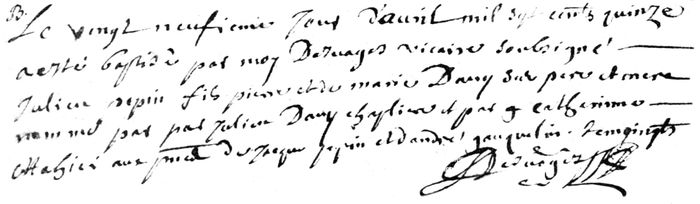 B.
Le vingt neufieme Jour d'avril mil sept cents quinze
a esté baptisé par moy Desvages vicaire soubsigné
Julien pepin fils pierre et de marie Davy ses pere et mere
nommé par par Julien Davy et par Catherinne
aux de Jacque pepin et d'andré Jacquelin temoingts
Desvages